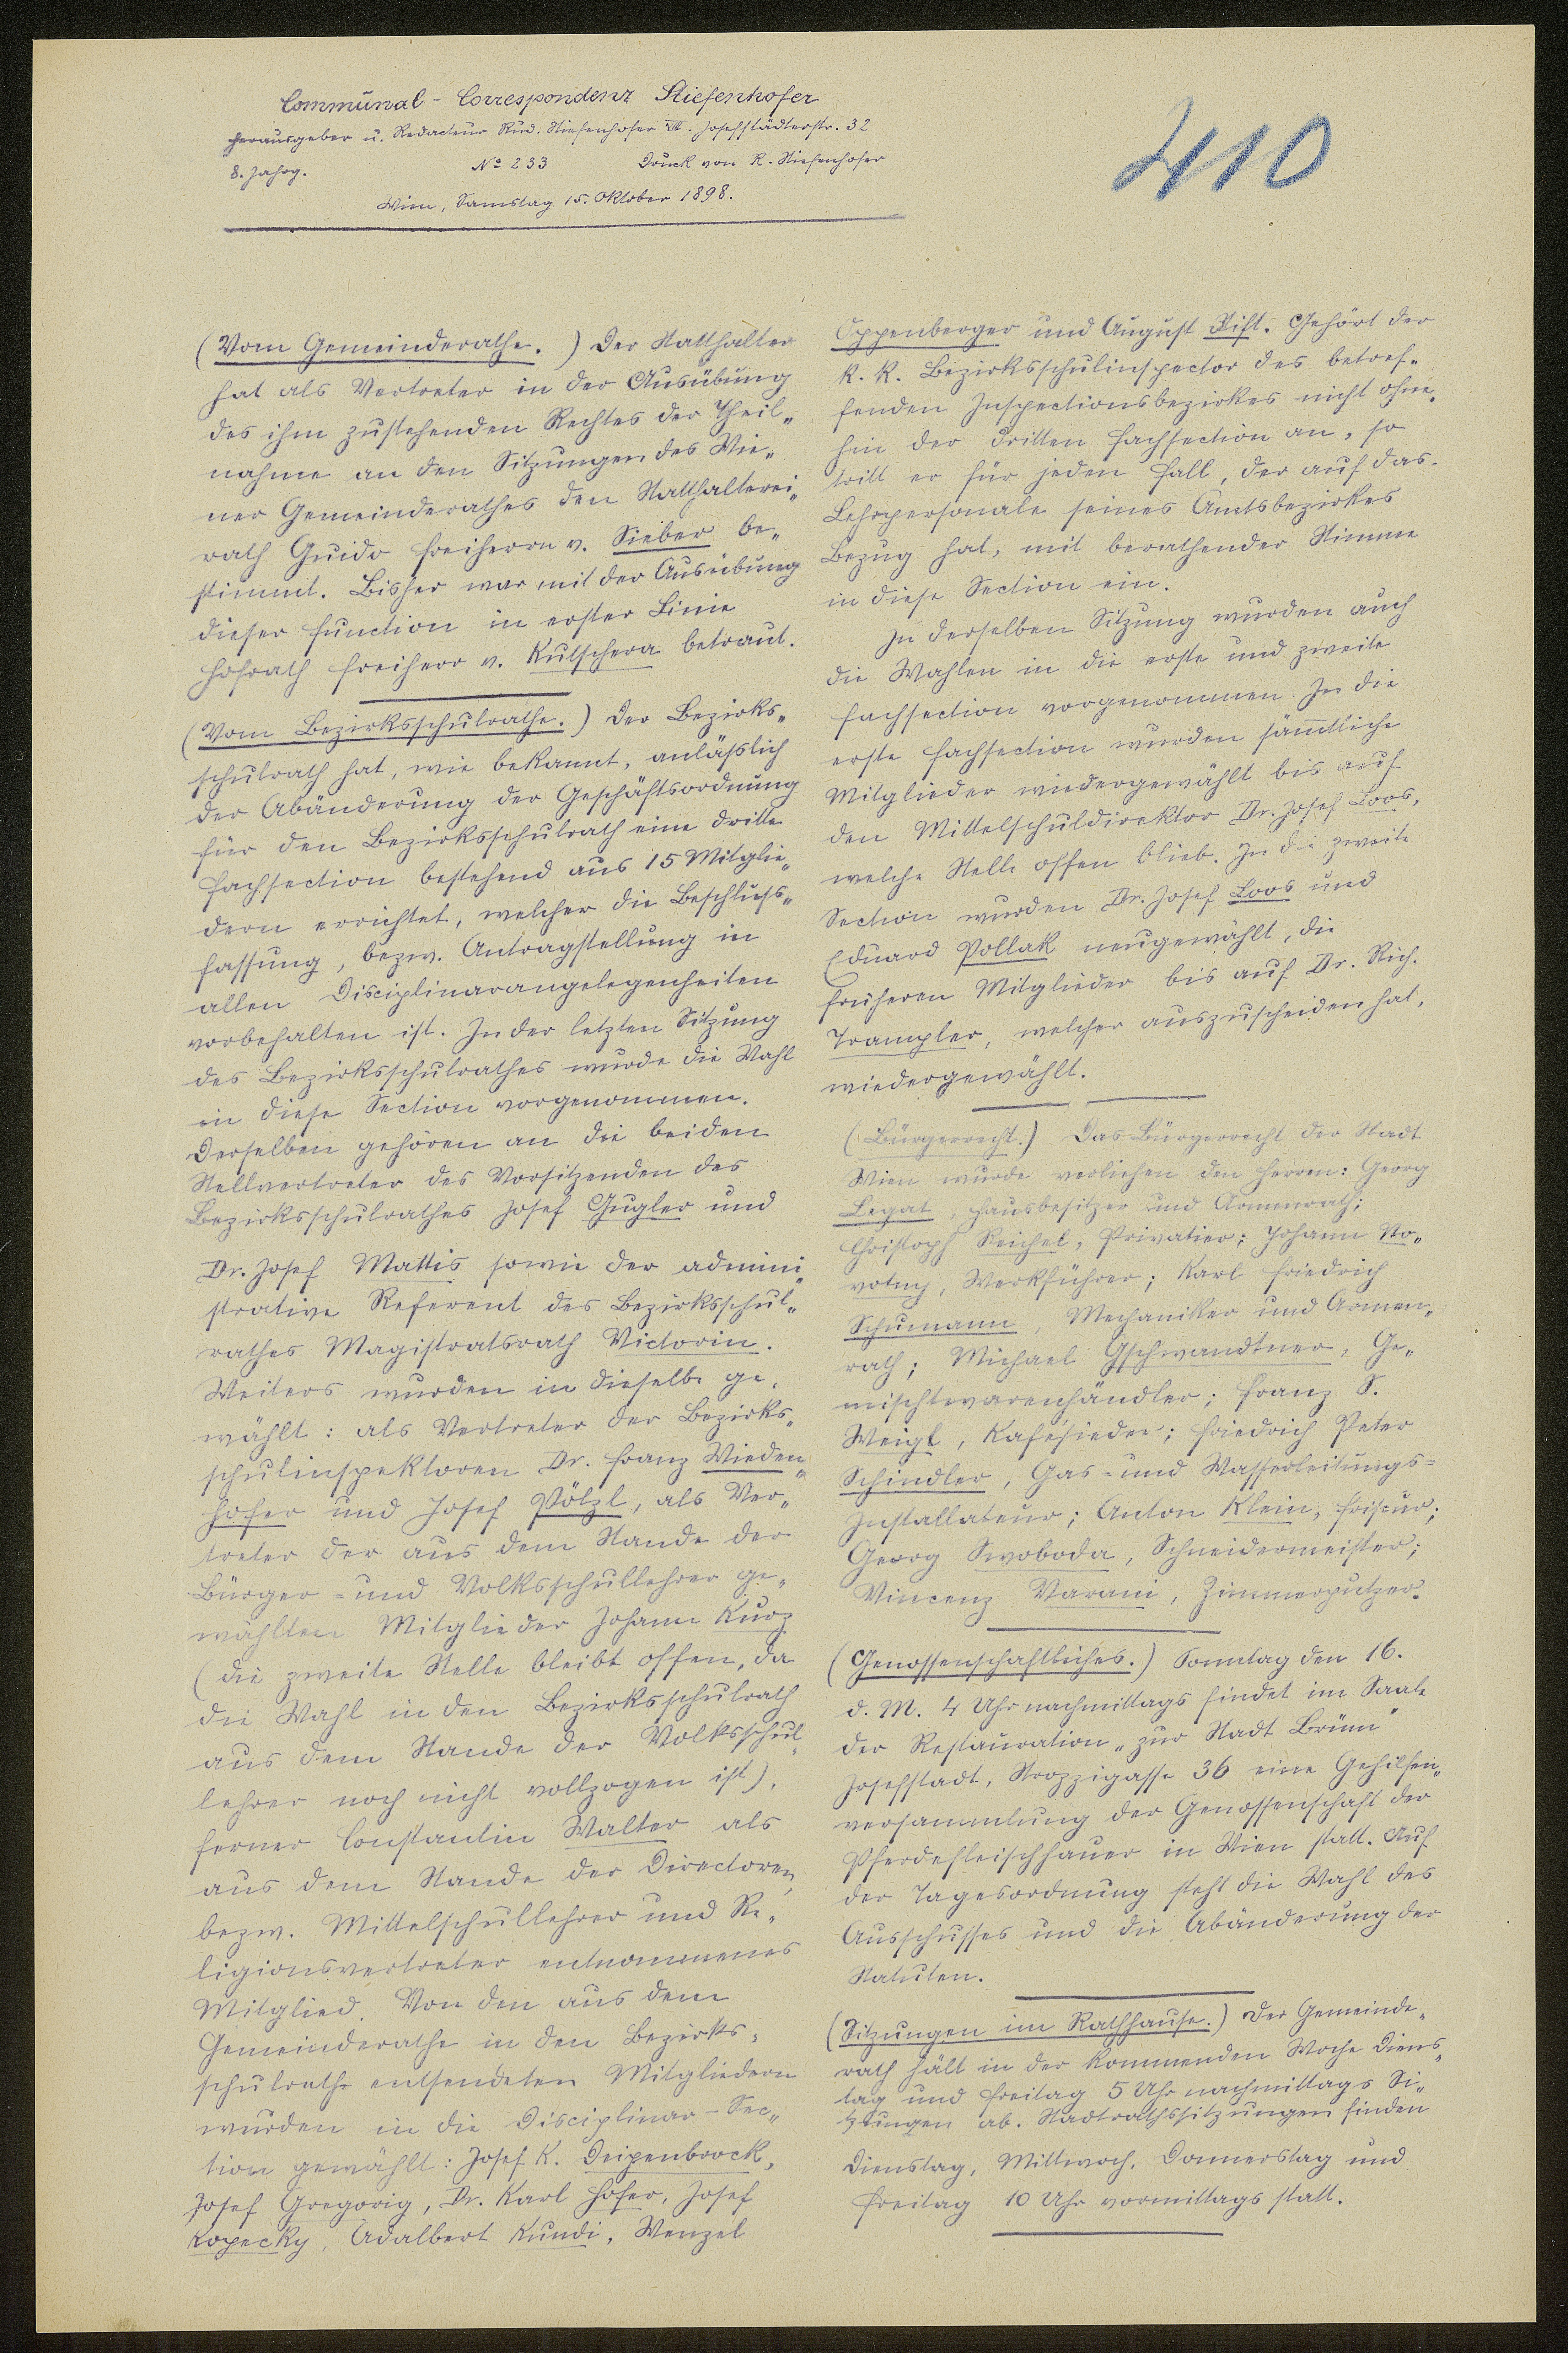 Communal-Correspondenz Stiefenhofer
Herausgeber u. Redacteur Rud. Stiefenhofer VIII. Josefstädterstr. 32
8. Jahrg. No 233 Druck von R. Stiefenhofer
Wien, Samstag 15. Oktober 1898.
410
(Vom Gemeinderathe.) Der Statthalter
hat als Vertreter in der Ausübung
des ihm zustehenden Rechtes der Theil„
nahme an den Sitzungen des Wie„
ner Gemeinderathes den Statthalterei„
rath Guido Freiherrn v. Sieber be„
stimmt. Bisher war mit der Ausübung
dieser Function in erster Linie
Hofrath Freiherr v. Kutschera betraut.
(Vom Bezirksschulrathe.) Der Bezirks„
schulrath hat, wie bekannt, anläßlich
der Abänderung der Geschäftsordnung
für den Bezirksschulrath eine dritte
Fachsection bestehend aus 15 Mitglie„
dern errichtet, welcher die Beschluss„
fassung, bezw. Antragstellung in
allen Disciplinarangelegenheiten
vorbehalten ist. In der letzten Sitzung
des Bezirksschulrathes wurde die Wahl
in diese Section vorgenommen.
Derselben gehören an die beiden
Stellvertreter des Vorsitzenden des
Bezirksschulrathes Josef Gugler und
Dr. Josef Mattis sowie der admini„
strative Referent des Bezirksschul„
rathes Magistratsrath Victorin.
Weiters wurden in dieselbe ge„
wählt: als Vertreter der Bezirks„
schulinspektoren Dr. Franz Wieden„
hofer und Josef Pölzl, als Ver„
treter der aus dem Stande der
Bürger- und Volksschullehrer ge„
wählten Mitglieder Johann Kurz
(die zweite Stelle bleibt offen, da
die Wahl in den Bezirksschulrath
aus dem Stande der Volksschul„
lehrer noch nicht vollzogen ist),
ferner Constantin Walter als
aus dem Stande der Directoren,
bezw. Mittelschullehrer und Re„
ligionsvertreter entnommenes
Mitglied. Von den aus dem
Gemeinderathe in den Bezirks„
schulrathe entsendeten Mitgliedern
wurden in die Disciplinar-Sec„
tion gewählt: Josef K. Deipenbrock,
Josef Gregorig, Dr. Karl Hofer, Josef
Kopecky, Adalbert Kundi, Wenzel
Oppenberger und August Stift. Gehört der
k. k. Bezirksschulinspector des betref„
fenden Inspectionsbezirkes nicht ohne„
hin der dritten Fachsection an, so
tritt er für jeden Fall, der auf das
Lehrpersonale seines Amtsbezirkes
Bezug hat, mit berathender Stimme
in diese Section ein.
In derselben Sitzung wurden auch
die Wahlen in die erste und zweite
Fachsection vorgenommen. In die
erste Fachsection wurden säm̄tliche
Mitglieder wiedergewählt bis auf
den Mittelschuldirektor Dr. Josef Loos,
welche Stelle offen blieb. In die zweite
Section wurden Dr. Josef Loos und
Eduard Pollak neugewählt, die
früheren Mitglieder bis auf Dr. Rich.
Trampler, welcher auszuscheiden hat,
wiedergewählt.
(Bürgerrecht.) Das Bürgerrecht der Stadt
Wien wurde verliehen den Herren: Georg
Legat, Hausbesitzer und Armenrath;
Christoph Reichel, Privatier; Johann No„
votny, Werkführer; Karl Friedrich
Schumann, Mechaniker und Armen„
rath; Michael Gschwandtner, Ge„
mischtwarenhändler; Franz S.
Weigl, Kafésieder; Friedrich Peter
Schindler, Gas- und Wasserleitungs-
Installateur; Anton Klein, Friseur;
Georg Swoboda, Schneidermeister;
Vincenz Varani, Zimmerputzer.
(Genossenschaftliches.) Sonntag den 16.
d. M. 4 Uhr nachmittags findet im Saale
der Restauration „zur Stadt Brünn"
Josefstadt, Strozzigasse 36 eine Gehilfen„
versammlung der Genossenschaft der
Pferdefleischhauer in Wien statt. Auf
der Tagesordnung steht die Wahl des
Ausschusses und die Abänderung der
Statuten.
(Sitzungen im Rathhause.) Der Gemeinde„
rath hält in der kommenden Woche Diens„
tag und Freitag 5 Uhr nachmittags Si„
tzungen ab. Stadtrathssitzungen finden
Dienstag, Mittwoch, Donnerstag und
Freitag 10 Uhr vormittags statt.